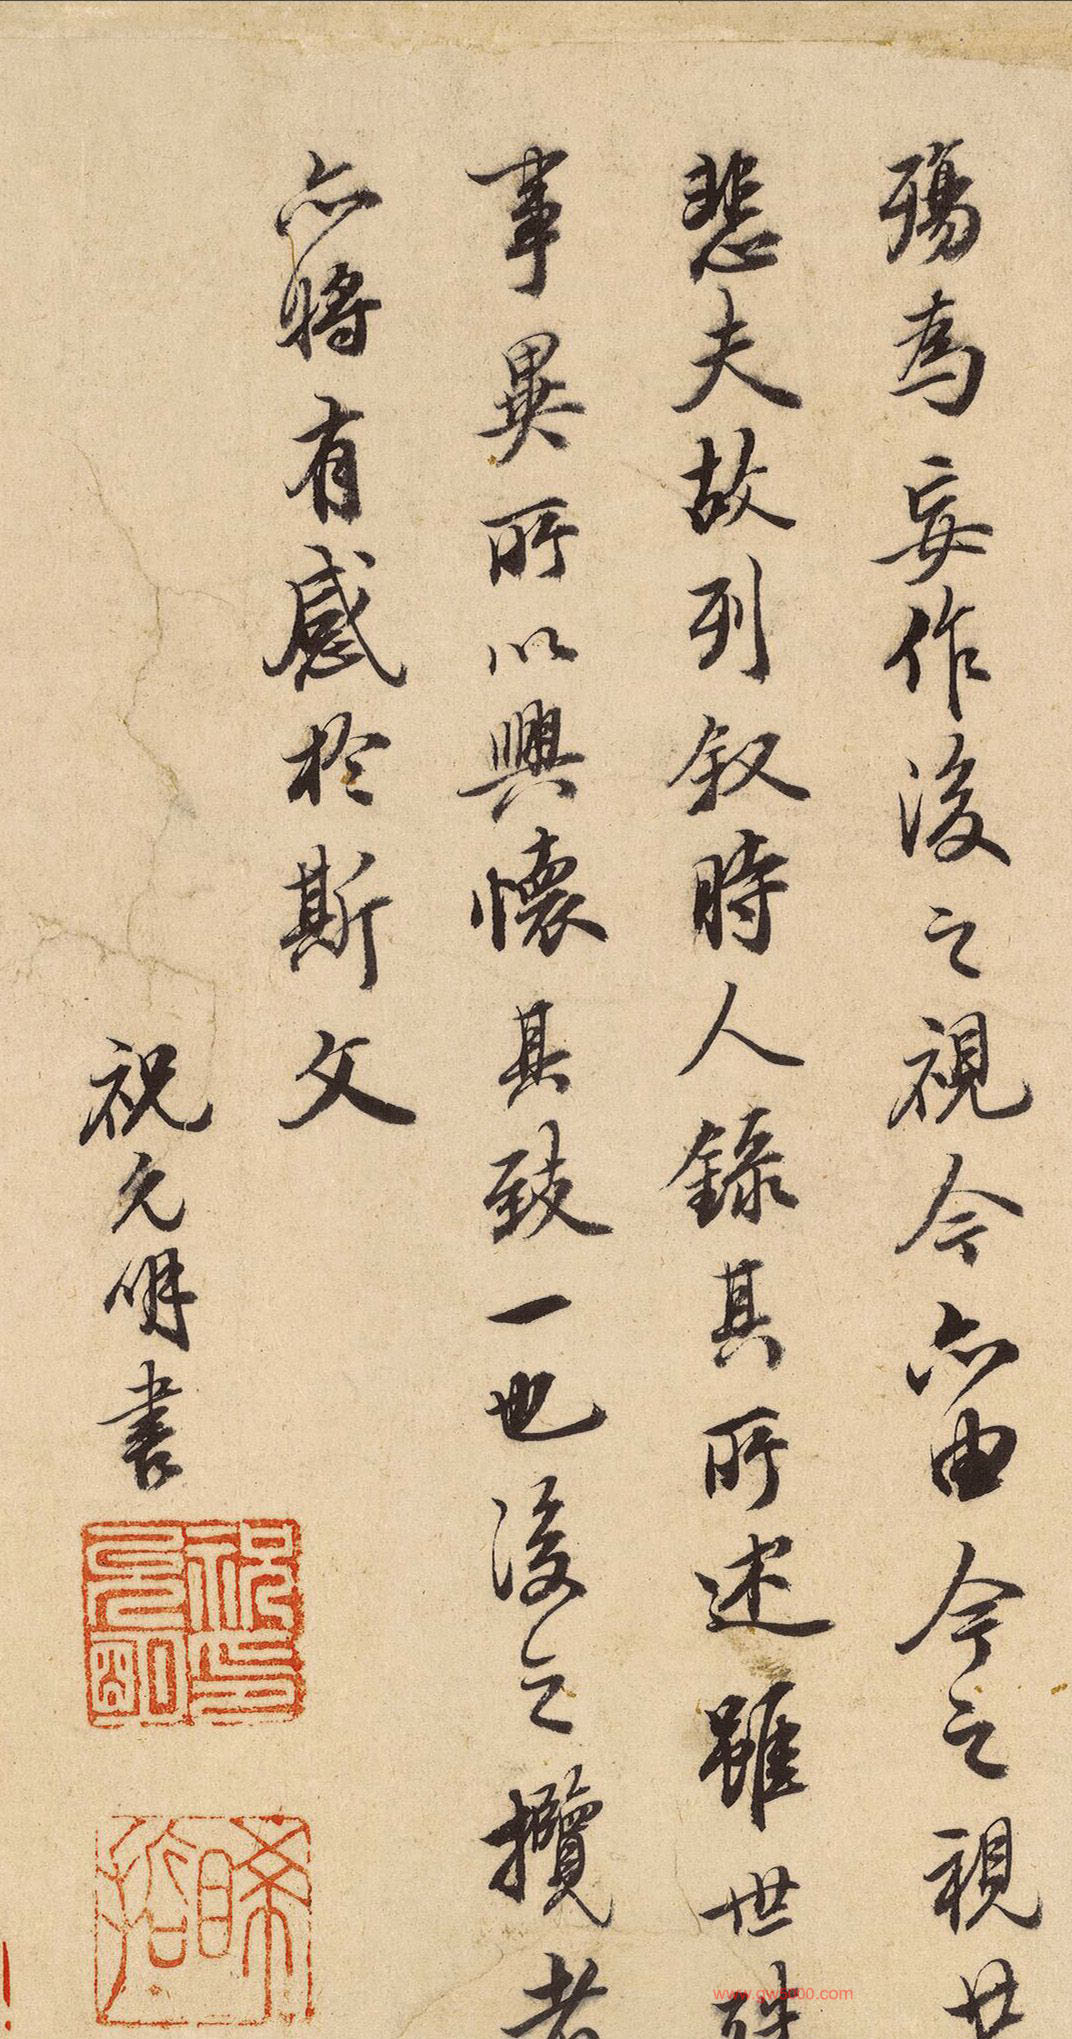 殤為妄作後之視今亦由今之視廿
悲夫故列叙時人錄其所述雖世殊
事異所以興懷其致一也後之攬者
亦將有感於斯文
祝允明書
祝允明印
晞喆
www.gw5000.com